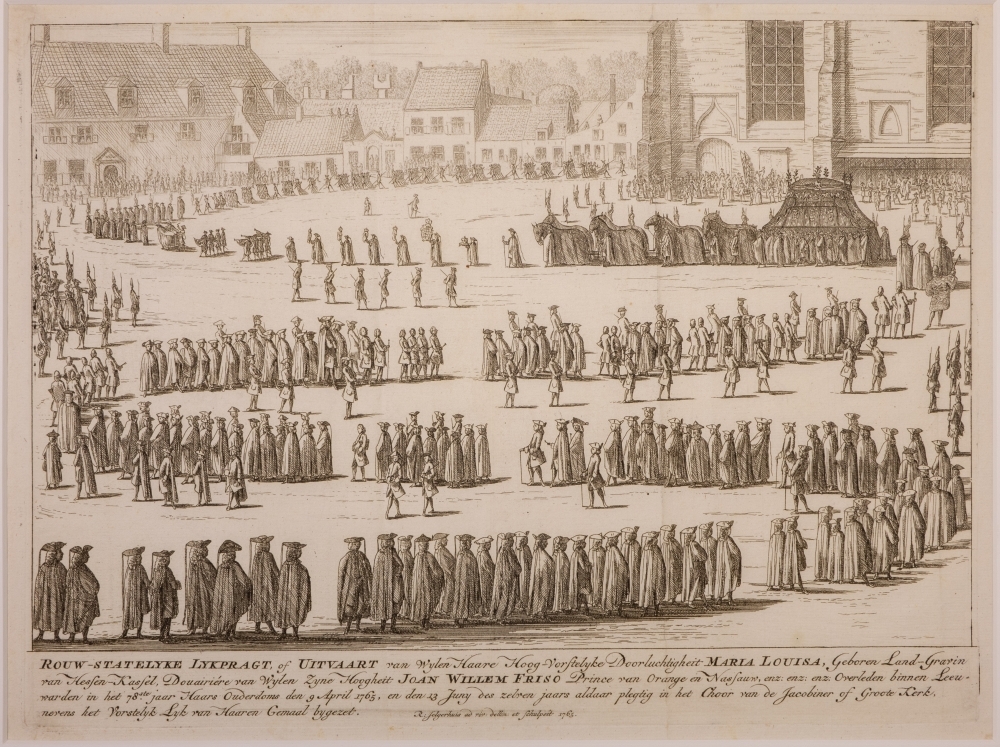 ROUW-STATELYKE LYKPRAGT, of UITVAART van Wylen Haare Hoog-Vorstelyke Doorluchtigheit MARIA LOUISA, Geboren Land-Gravin
van Hessen-Kassel, Douairiére van Wylen Zyne Hoogheit JOAN WILLEM FRISO Prince van Orange en Nassauw, enz. enz. enz. Overleden binnen Leeu-
warden in het 78ste jaar Haars Ouderdoms den 9 April 1765, en den 13 Juny des zelven jaars aldaar plegtig in het Choor van de Jacobiner of Groote Kerk,
nevens het Vorstelyk Lyk van Haaren Gemaal bygezet.
R: Folgerhuis ad viv: delin: et sculpsit 1765.